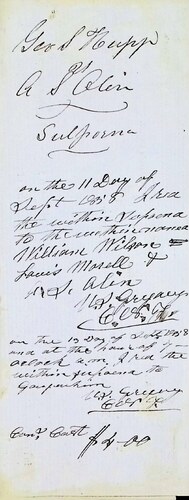 Geo S Hupp
A S Olin
Subpoena
on the 11 Day of
Sept 1858 I red
the within Supona
to the within named
William Wilson
Louis Morell &
A S. Olin
W S Gregory
on the 13 Day of Sept 1858
and at the hour of
oclock a.m. I red the
within supoena to
W S Gregory
Cons Cost $2.00